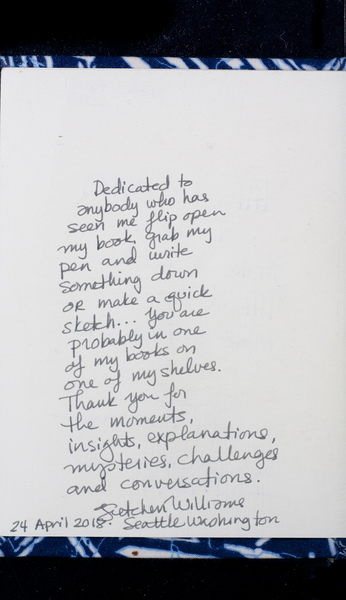 Dedicated to
anybody who has
seen me flip open
my book, grab my
pen and write
something down
or make a quick
sketch... You are
probably in one
of my books on
one of my shelves.
Thank you for
the moments,
insights, explanations,
mysteries, challenges
and conversations.
Gretchen Williams
24 April 2018. Seattle Washington